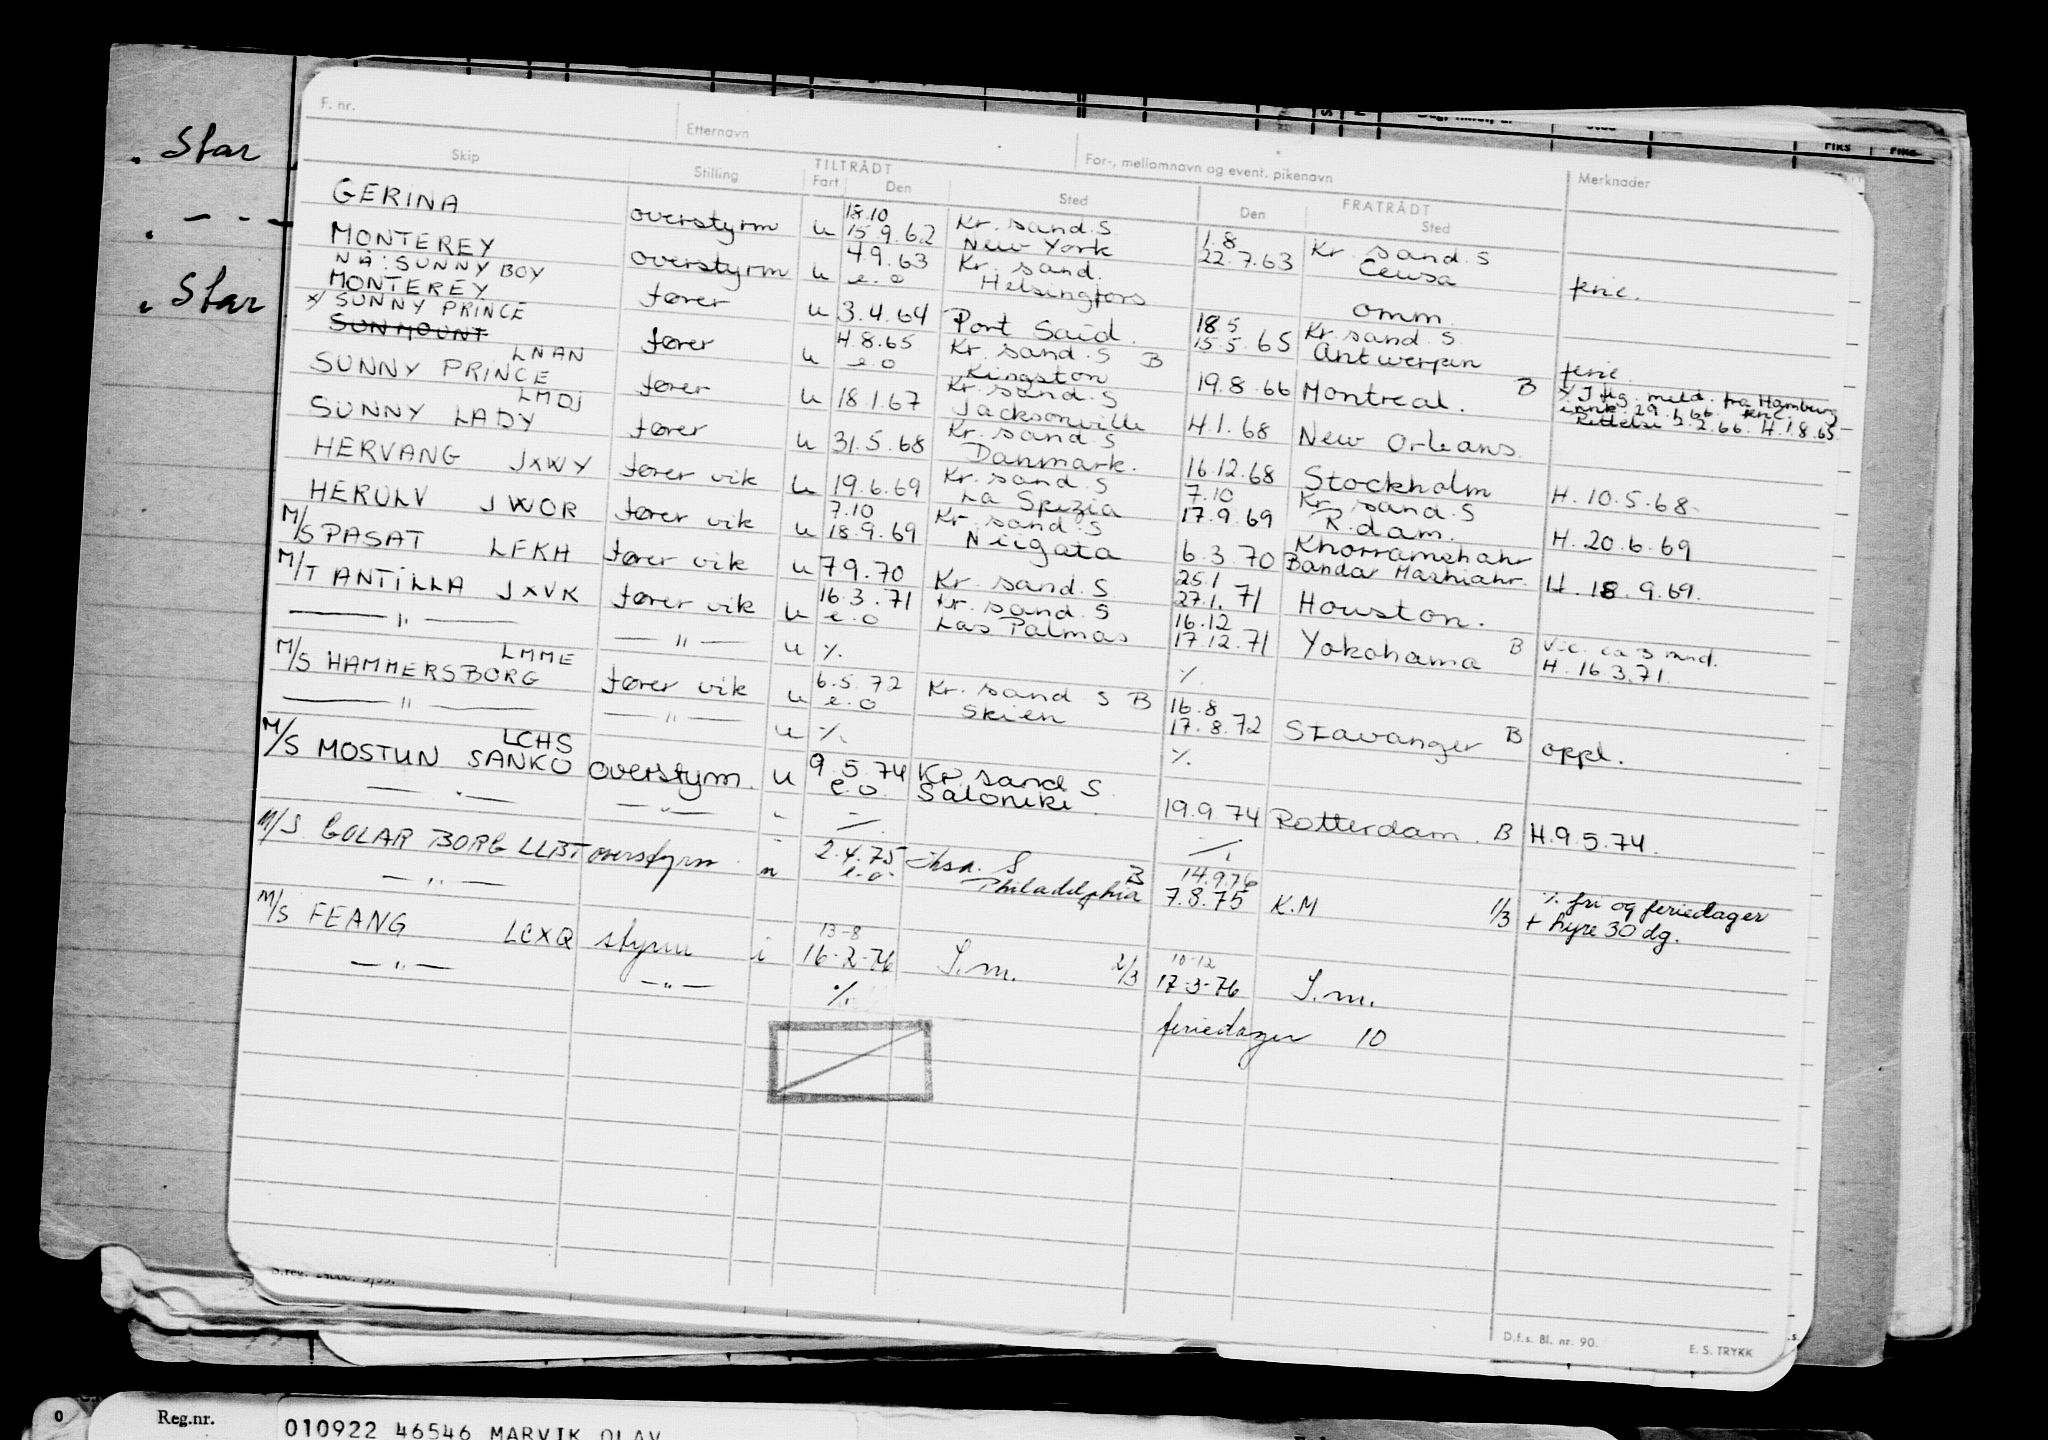 . Star
. - - -
. Star
F. nr.
Etternavn
For-, mellomnavn og event. pikenavn
Merknader
Skip
Stilling
TILTRÅDT
Fart
Den
Sted
FRATRÅDT
Den
Sted
GERINA overstyrm u 18.10 15.9.62 Kr. sand. S New York 1.8 22.7.63 Kr. sand. S Ceusa ferie.
MONTEREY NÅ: SUNNY BOY overstyrm u 4.9.63 e.o Kr. sand. Helsingfors omm.
MONTEREY fører u 3.4.64 Port Said. 18.5 15.5.65 Kr. sand. S. Antwerpen ferie.
x/ SUNNY PRINCE SUNMOUNT fører u 4.8.65 e.o Kr. sand. S B Kingston 19.8.66 Montreal. B x/ J flg. meld. fra Hamburg 29.1.66. Rettelse 2.2.66. H.1.8.65.
SUNNY PRINCE LNAN fører u 18.1.67 Kr. sand. S Jacksonville 4.1.68 New Orleans.
SUNNY LADY LMDJ fører u 31.5.68 Kr. sand. S Danmark. 16.12.68 Stockholm H. 10.5.68.
HERVANG JXWY fører vik u 19.6.69 Kr. sand. S La Spezia 7.10 17.9.69 Kr. sand. S R.dam. H. 20.6.69
HERULV JWOR fører vik u 7.10 18.9.69 Kr. sand. S Niigata 6.3.70 Khorramshahr Bandar Mashahr. H. 18.9.69.
M/S PASAT LFKH fører vik u 7.9.70 Kr. sand. S 25.1 27.1.71 Houston.
M/T ANTILLA JXVK fører vik u 16.3.71 e.o Kr. sand. S Las Palmas 16.12 17.12.71 Yokohama B Vic. ca 3 mnd. H. 16.3.71.
— " — — " — u %. %.
M/S HAMMERSBORG LMME fører vik u 6.5.72 e.o Kr. sand S B Skien 16.8 17.8.72 Stavanger B oppl.
— " — — " — u %. %.
M/S MOSTUN SANKO LCHS overstyrm. u 9.5.74 e.o. Kr. sand S. Saloniki. 19.9.74 Rotterdam. B H.9.5.74.
— " — — " — - %. %.
M/S. GOLAR BORG LLBT overstyrm - n 2.4.75 e.o. S B Philadelphia 14.9.76 7.8.75 K.M 1/3 % fri og feriedager + hyre 30 dg.
— " —
M/S FEANG LCXQ styrm i 13-8 16-2-76 S.m. 2/3 10-12 17-3-76 S.m.
— " — — " — %. feriedager 10
S.rev. 24000. 3/55.
D.f.s. Bl. nr. 90.
E. S. TRYKK
0 Reg.nr. 010922 46546 MARVIK OLAV